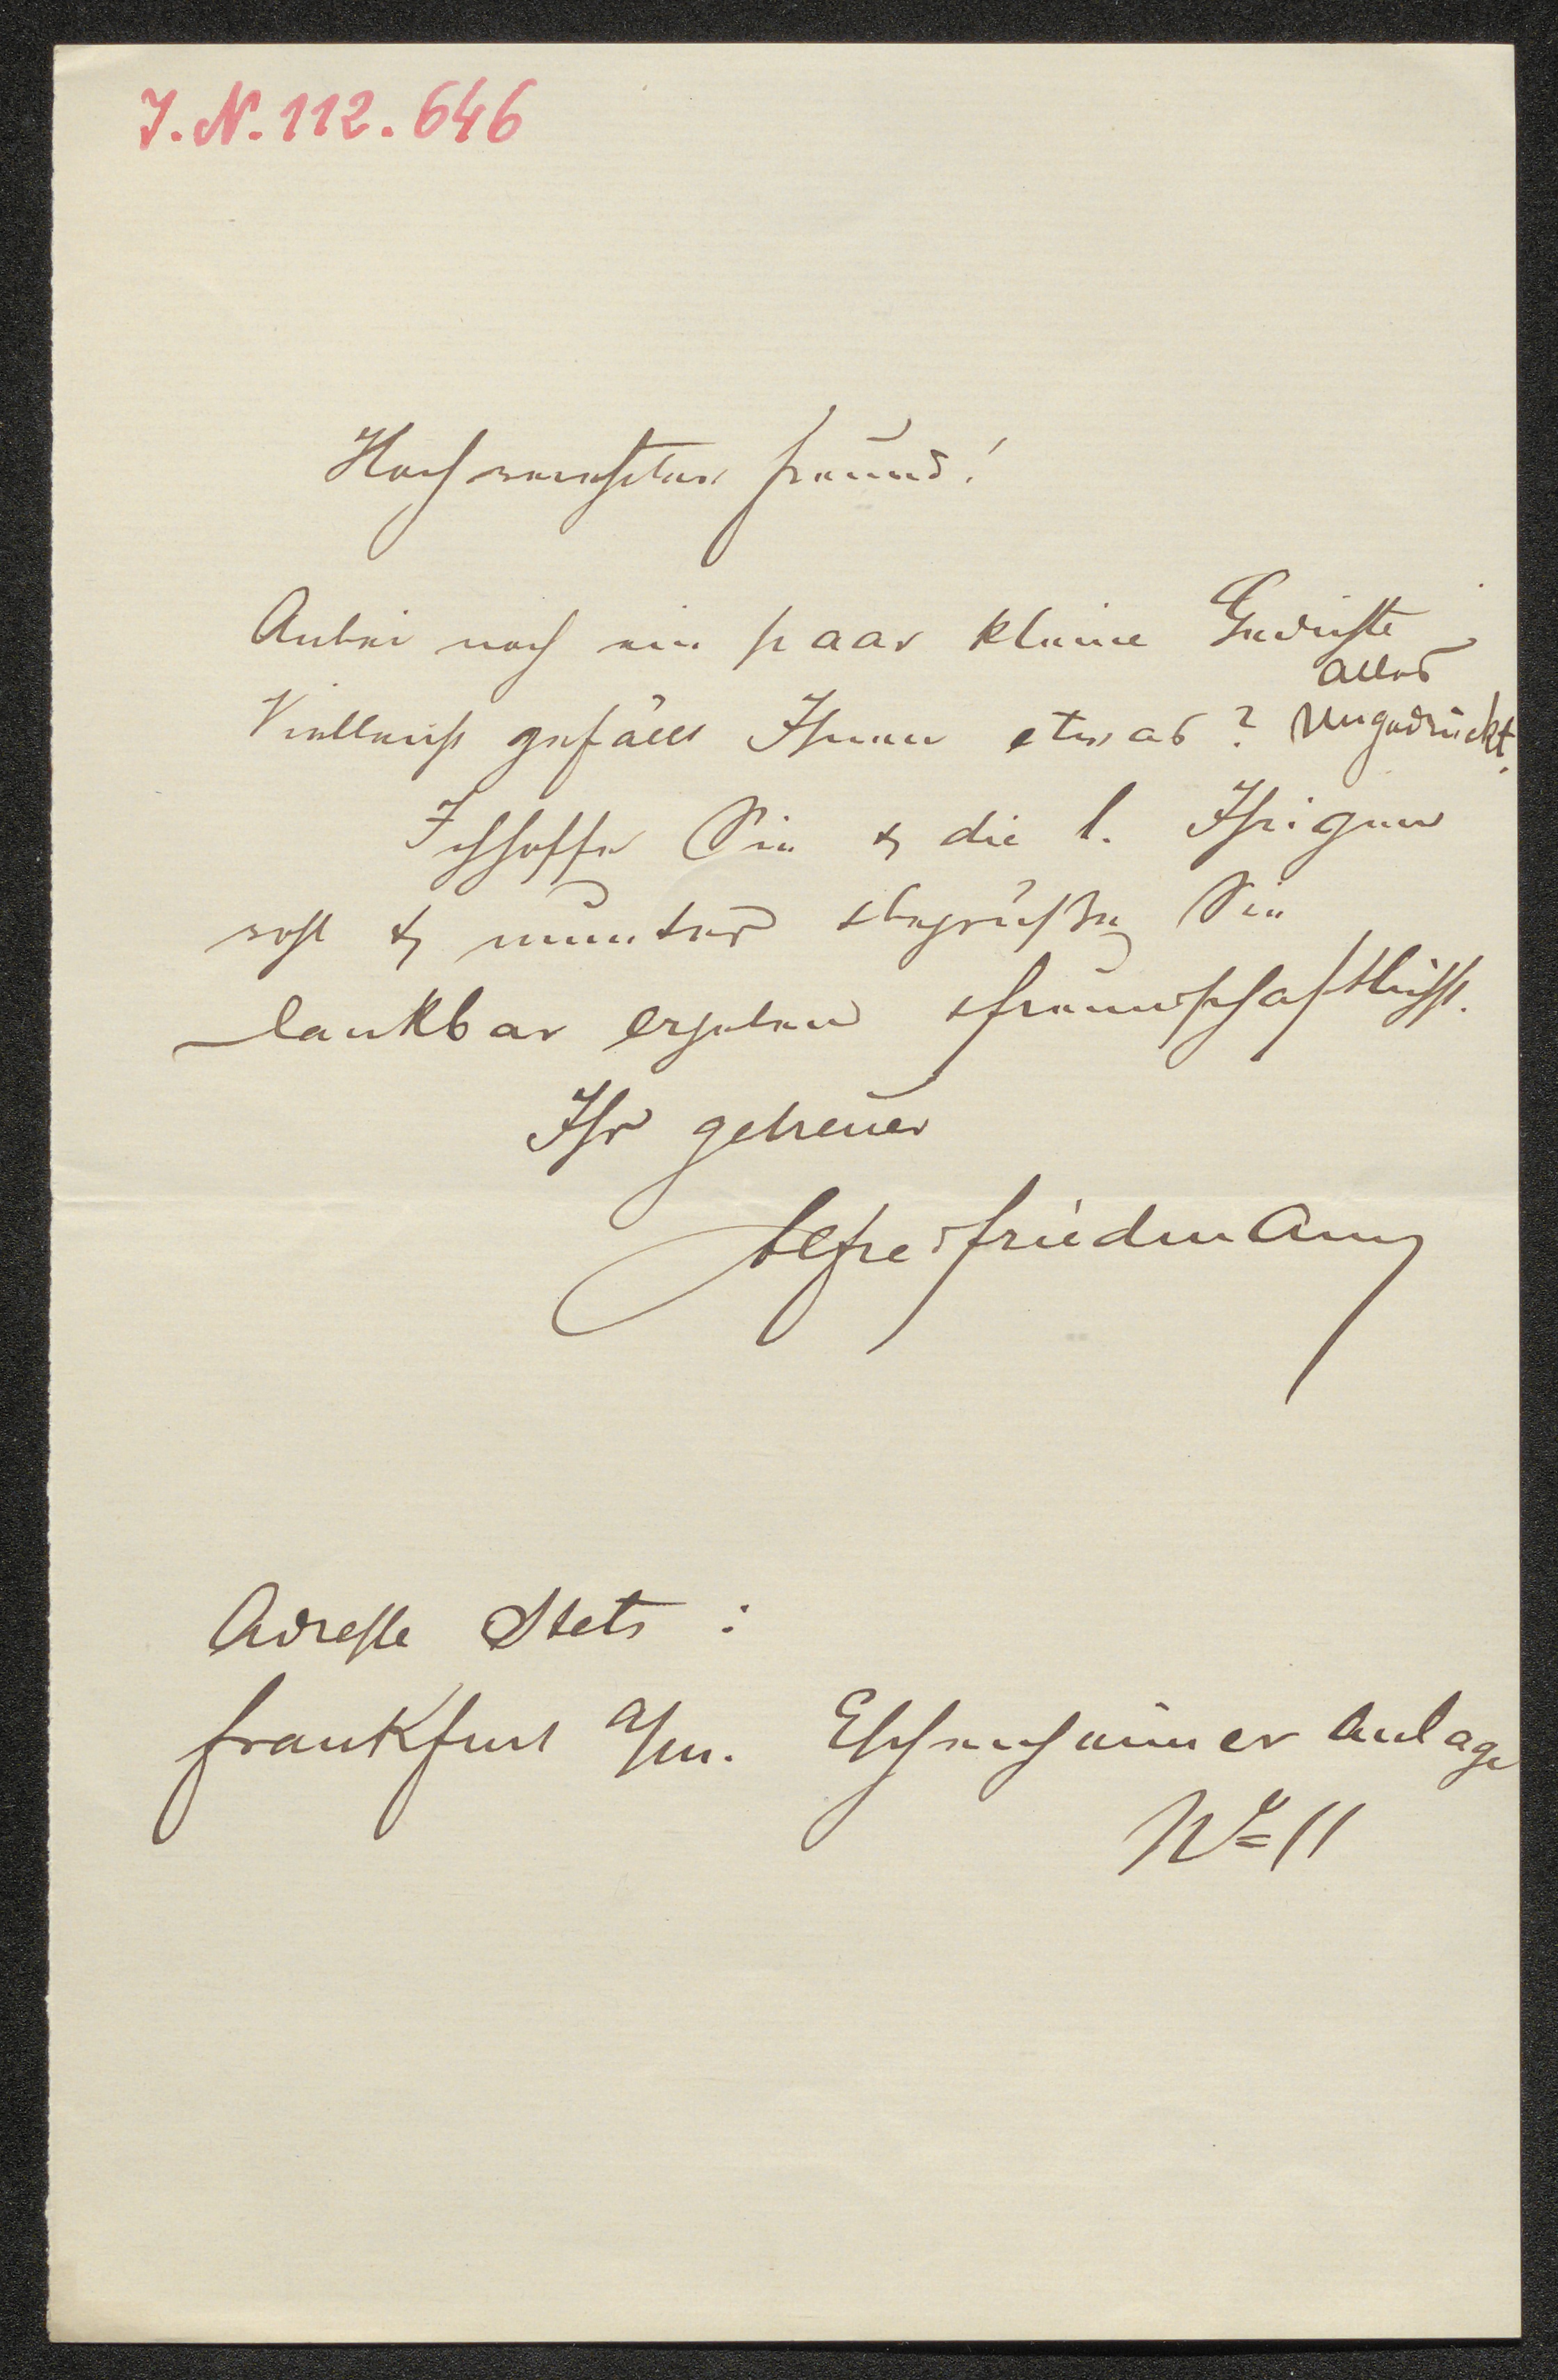 I. N. 112.646
Hochverehrter Freund!
Anbei noch ein paar kleine Gedichte
alles
Vielleicht gefällt Ihnen etwas? Ungedruckt.
Ich hoffe Sie & die l. Ihrigen
wohl & munter & begrüße Sie
dankbar ergeben & freundschaftlichst.
Ihr getreuer
Alfred Friedmann
Adresse Stets:
Frankfurt a/m. Eschenheimer Anlage
No 11